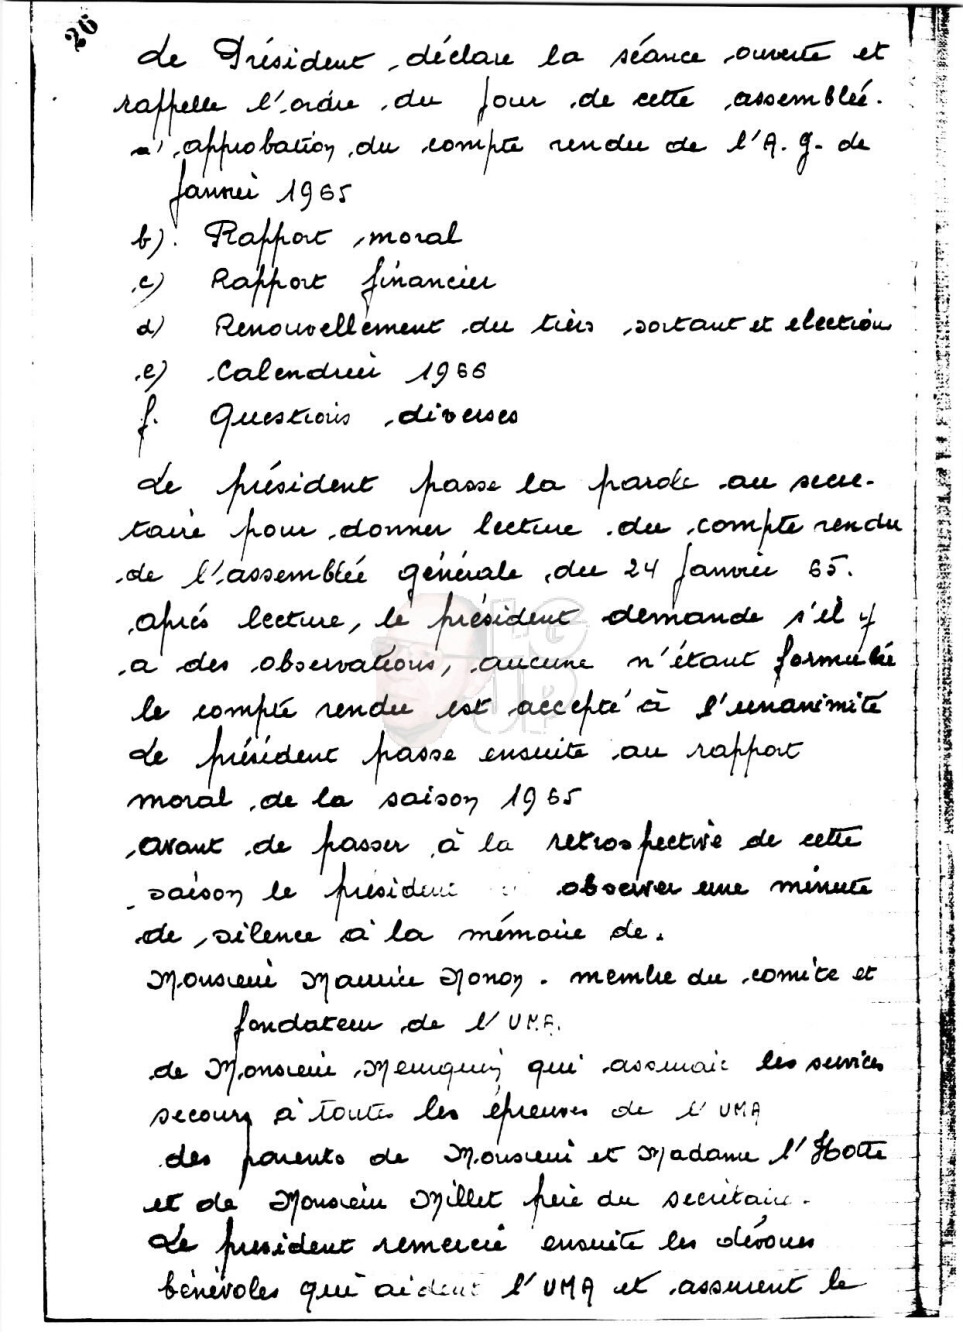 26
Le Président déclare la séance ouverte et
rappelle l'ordre du jour de cette assemblée.
a) approbation du compte rendu de l'A.G. de
Janvier 1965
b). Rapport moral
c) Rapport financier
d) Renouvellement du tiers sortant et election
e) Calendrier 1966
f. Questions diverses
Le président passe la parole au secre-
taire pour donner lecture du compte rendu
de l'assemblée générale du 24 Janvier 65.
après lecture, le président demande s'il y
a des observations, aucune n'étant formulée
le compte rendu est accepté à l'unanimité
Le président passe ensuite au rapport
moral de la saison 1965
avant de passer à la retrospective de cette
saison le président observer une minute
de silence à la mémoire de.
Monsieur Maurice Monon. membre du comite et
fondateur de l'UMA.
de Monsieur qui assurait les services
secours à toutes les épreuves de l'UMA
des parents de Monsieur et Madame l'Hotte
et de Monsieur Millet père du secrétaire.
Le president remercie ensuite les dévoués
bénévoles qui aident l'UMA et assurent le